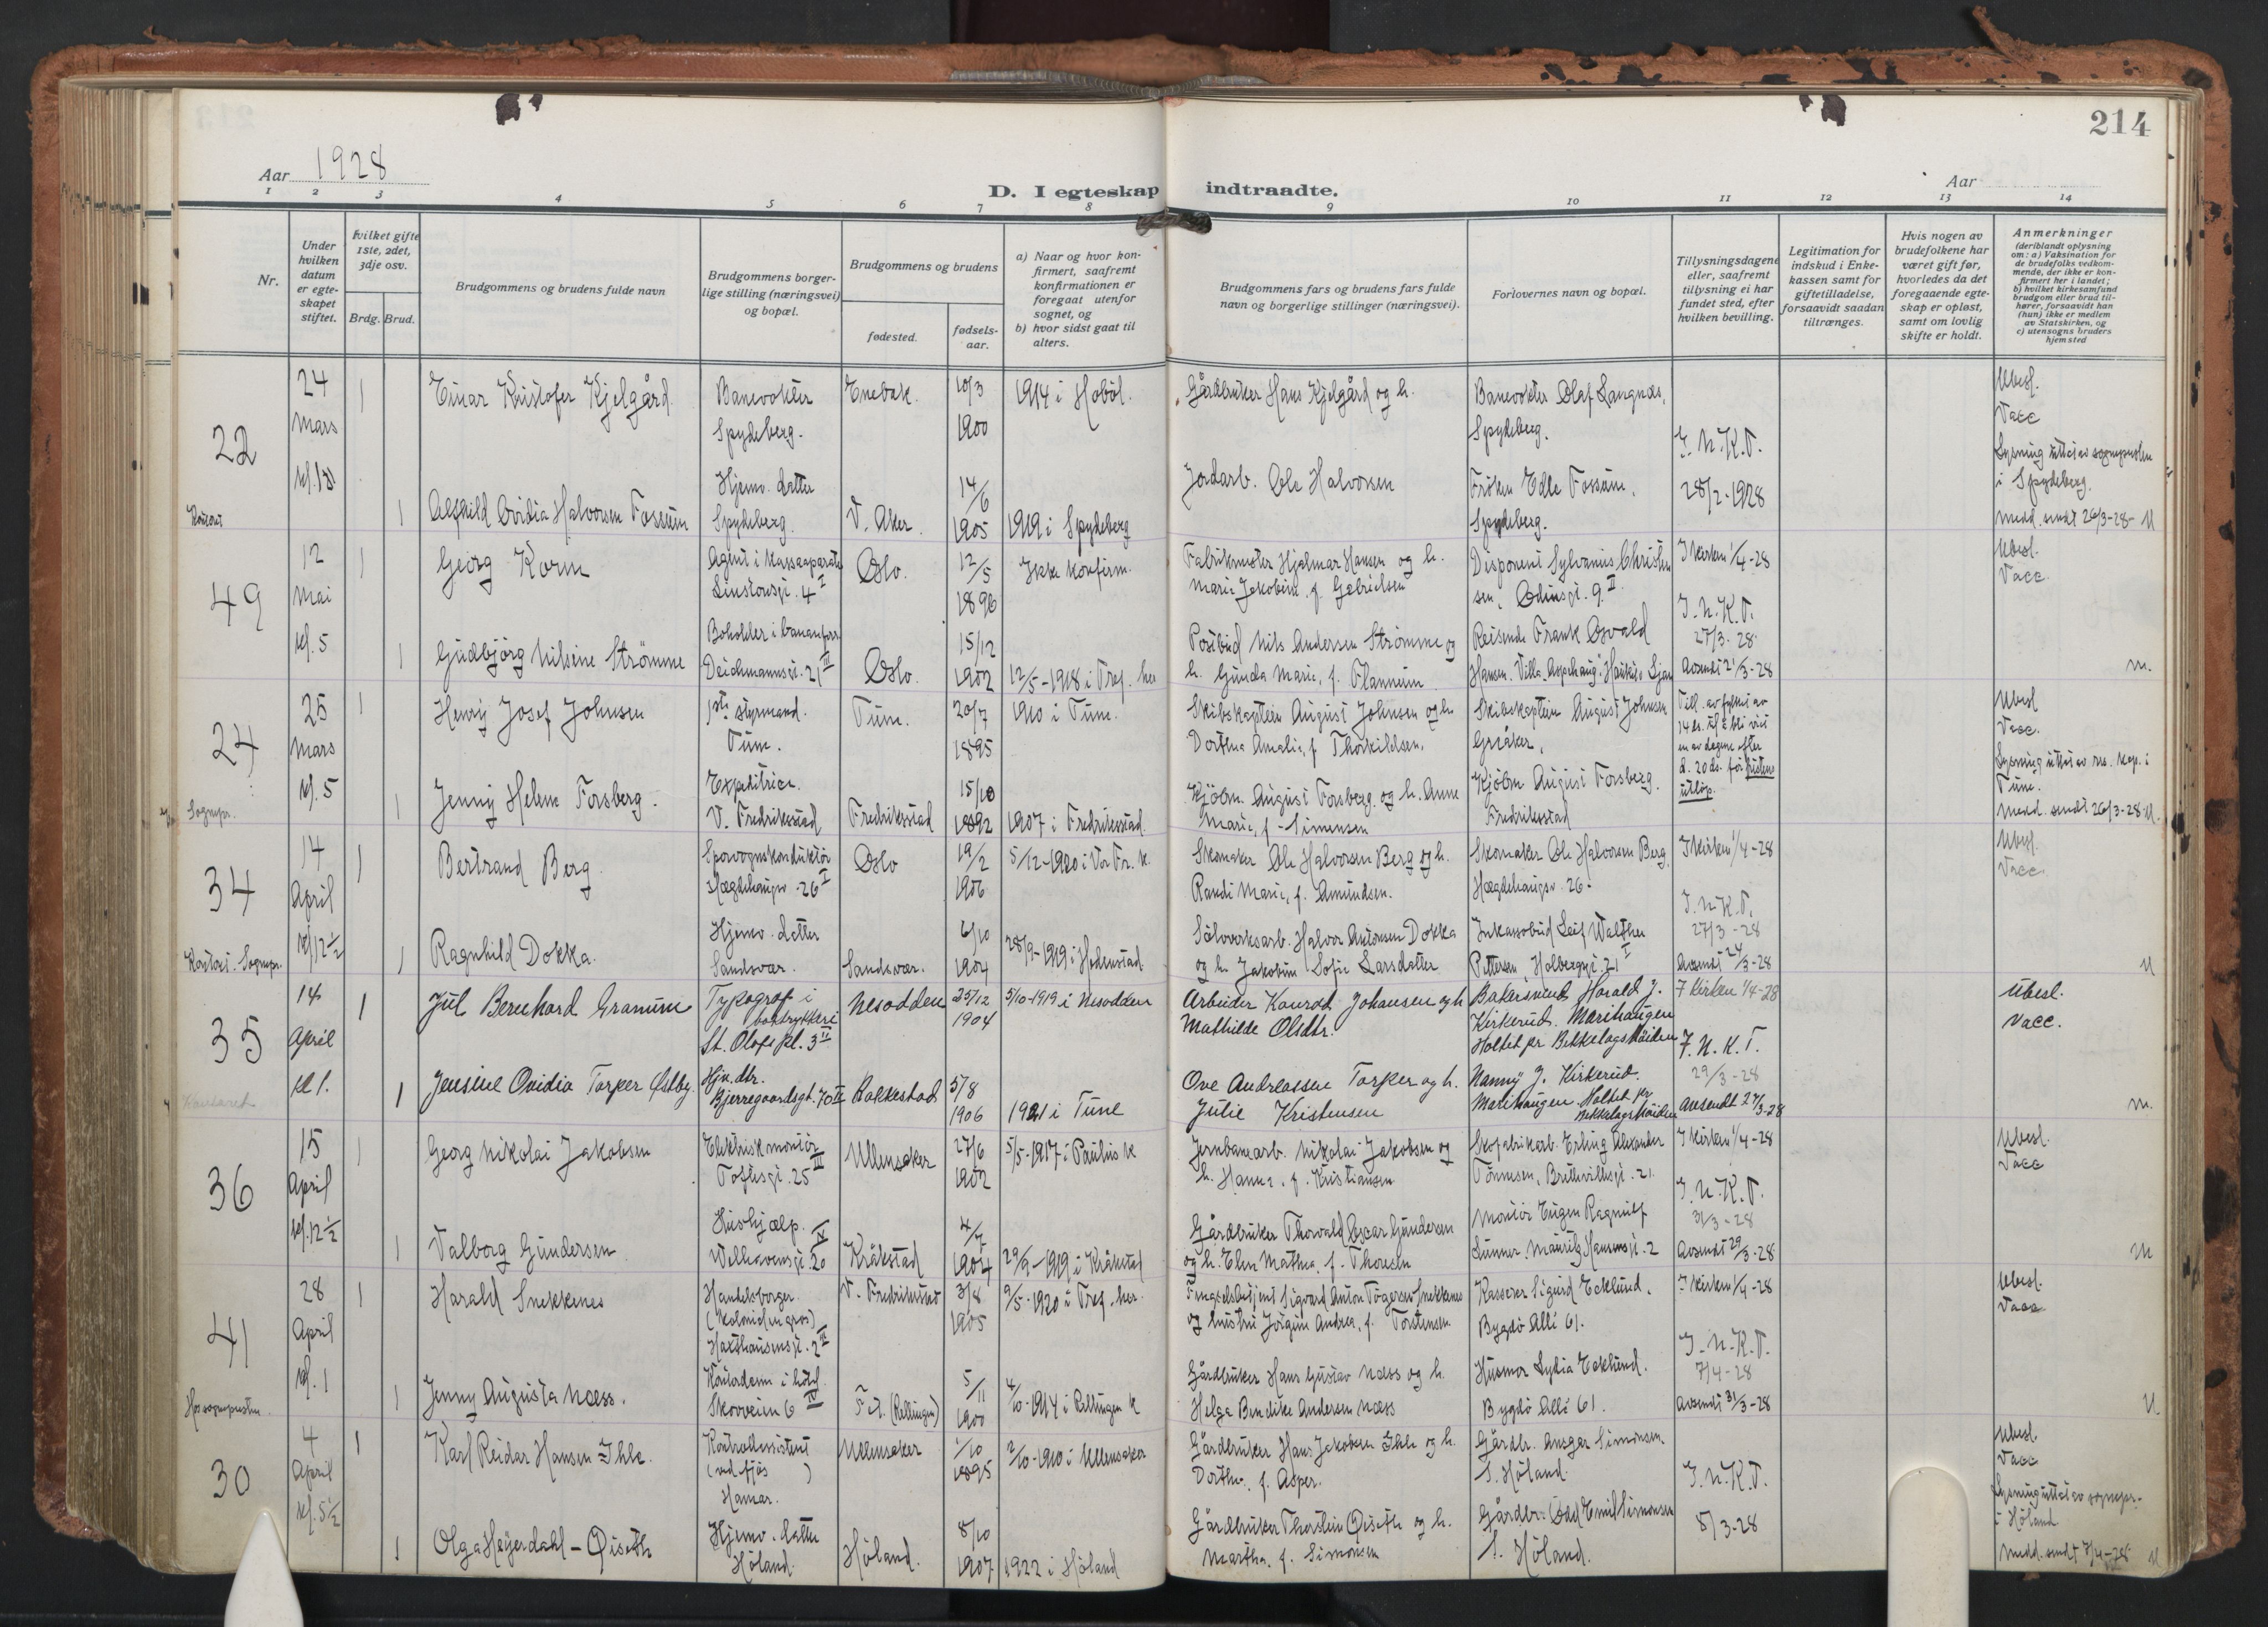 214
Aar 1928
D. I egteskap indtraadte.
Aar
1 2 3 4 5 6 7 8 9 10 11 12 13 14
Nr.
Under hvilken datum er egteskapet stiftet.
hvilket gifte 1ste, 2det, 3dje osv.
Brdg. Brud.
Brudgommens og brudens fulde navn
Brudgommens borgerlige stilling (næringsvei) og bopæl.
Brudgommens og brudens
fødested.
fødselsaar.
a) Naar og hvor konfirmert, saafremt konfirmationen er foregaat utenfor sognet, og
b) hvor sidst gaat til alters.
Brudgommens fars og brudens fars fulde navn og borgerlige stillinger (næringsvei).
Forlovernes navn og bopæl.
Tillysningsdagene eller, saafremt tillysning ei har fundet sted, efter hvilken bevilling.
Legitimation for indskud i Enkekassen samt for giftetilladelse, forsaavidt saadan tiltrænges.
Hvis nogen av brudefolkene har været gift før, hvorledes da det foregaaende egteskap er opløst, samt om lovlig skifte er holdt.
Anmerkninger (deriblandt oplysning om: a) Vaksination for de brudefolks vedkommende, der ikke er konfirmert her i landet; b) hvilket kirkesamfund brudgom eller brud tilhører, forsaavidt han (hun) ikke er medlem av Statskirken, og c) utensogns bruders hjemsted
22
24 Mars
1
Einar Kristofer Kjelgård
Banevokter Spydeberg.
Enebak.
10/3 1900
1914 i Hobøl.
Gårdbruker Hans Kjelgård og h.
Banevokter Olaf Langnæs, Spydeberg.
J. N. K. T.
28/2-1928
Ubesl.
Vacc
Lysning uttat av sognepresten i Spydeberg.
medd. sendt 26/3-28- M
1
Ovidia Halvorsen Fossum
Hjemv. datter Spydeberg.
V. Aker.
14/6 1905
1919 i Spydeberg
Jordarb. Ole Halvorsen
Frøken Edle Fossum, Spydeberg.
49
12 Mai kl. 5
1
Georg Korin
Agent i kassaapparater Linstowsgt. 4 I
Oslo.
12/5 1896
Ikke konfirm.
Fabrikmester Hjalmar Hansen og h. Marie Jakobine f. Gabrielsen
Disponent Sylvanus Christensen, Odinsgt. 9 II
I kirken 1/4-28
J. N. K. T.
27/3-28
Avsendt 21/3-28
Ubesl.
Vacc.
m.
1
Gudbjörg Nilsine Strömme
Deichmannsgt. 21 III
Oslo.
15/12 1902
12/5-1918 i Tref. her
Postbud Nils Andersen Strömme og h. Gunda Marie, f. Flannum
Reisende Frank Osvald Hansen.
24
25 Mars kl. 5
Sognepr.
1
Henry Josef Johnsen
1ste styrmand. Tune.
Tune.
20/7 1895
1910 i Tune.
Skibskaptein August Johnsen og h. Dorthea Amalie, f. Thorkildsen.
Skibskaptein August Johnsen Gråker,
Ubesl
Vacc.
Lysning uttat av res. kap. i Tune.
medd. sendt 26/3-28 M.
1
Jenny Helene Forsberg.
Expeditrice. V. Fredriksstad
Fredriksstad
15/10 1892
1907 i Fredriksstad.
Kjöbm. August Forsberg og h. Anne Marie, f. Simensen
Kjöbm August Forsberg. Fredriksstad
34
14 April kl. 12 1/2
Kontoret. Sognepr.
1
Bertrand Berg
Sporvognskonduktör Hegdehaugsv. 26 I
Oslo
19/2 1906
5/12-1920 i Vor Fr. k.
Skomaker Ole Halvorsen Berg og h. Randi Marie, f. Amundsen.
Skomaker Ole Halvorsen Berg Hegdehaugsv. 26.
I kirken 1/4-28
J. N. K. T.
27/3-28
Avsendt 24/3-28
Ubesl.
Vacc.
M
1
Ragnhild Dokka.
Hjemv. datter Sandsvær.
Sandsvær.
6/10 1904
28/9-1919 i Hedenstad
Sölvverksarb. Halvor Antonsen Dokka og h. Jakobine Sofie Larsdatter
Inkassobud Leif Walther Pettersen, Holbergsgt. 21 I
35
14 April kl 1.
1
Jul Bernhard Granum
Typograf i boktrykkeri St. Olafs pl. 3 II
Nesodden
25/12 1904
5/10-1919 i Nesodden
Arbeider Konrad Johansen og h Mathilde Olsdtr.
Bakersvend Harald J. Kirkerud. Marihaugen Holtet pr Bekkelagshöiden
I kirken 1/4-28
J. N. K. T.
29/3-28
Avsendt 27/3-28
Ubesl.
Vacc.
m.
1
Jensine Ovidia Torper Østby.
Hjv. dtr. Bjerregaardsgt. 70 II
Rakkestad
5/8 1906
1921 i Tune
Ove Andreassen Torper og h. Julie Kristensen
Nanny J. Kirkerud. Marihaugen. Holtet pr Bekkelagshöiden
36
15 April kl. 12 1/2
1
Georg Nikolai Jakobsen
Elektrisk montör Toftesgt. 25 III
Ullensaker
27/6 1902
5/5-1917 i Paulus k
Jernbanearb. Nikolai Jakobsen og h. Hanna, f. Kristiansen
Skofabrikarb. Erling Alexander Tönnesen,
I kirken 1/4-28
J. N. K. T.
31/3-28
Avsendt 29/3-28
Ubesl.
Vacc
M
1
Valborg Gundersen
Hushjælp. Welhavensgt. 20 IV
Kråkstad
4/7 1904
29/9-1919 i Kråkstad
Gårdbruker Thorvald Oscar Gundersen og h. Elen Mathea, f. Thoresen
Montör Eugen Ragnulf Lunner, Mauritz Hansensgt. 2
41
28 April kl. 1
Hos sognepresten.
1
Harald Snekkenes
Handelsborger (kolonial en gros) Haxthausensgt. 2 III
V. Fredriksstad
3/8 1905
9/5-1920 i Tref. her.
Fængselsbetjent Sigvard Anton Tögersen Snekkenes og hustru Jörgine Andrea, f. Torstensen
Kasserer Sigurd Ecklund. Bygdö Allé 61.
I kirken 1/4-28
J. N. K. T.
7/4-28
Avsendt 31/3-28
Ubesl.
Vacc.
M
1
Jenny Augusta Næss.
Kontordame i hotel Skovveien 6 IV
Fet. (Rællingen)
5/11 1900
4/10-1914 i Rællingen k
Gårdbruker Hans Gustav Næss og h. Helga Bendikte Andersen Næss
Husmor Lydia Ecklund. Bygdö Allé 61.
30
4 April kl. 5 1/2
1
Karl Reidar Hansen Ihle.
Kontrollassistent (ved fjös) Hamar.
Ullensaker
1/10 1895
2/10-1910 i Ullensaker
Gårdbruker Hans Jakobsen Ihle og h. Dorthea, f. Asper.
Gårdbr. Ansgar Simonsen S. Höland.
J. N. K. T.
8/3-28
Ubesl.
Vacc
Lysning uttat av sognepr. i Höland
medd. sendt 7/4-28 M
1
Olga Heyerdahl-Qiseth
Hjemv. datter Höland.
Höland.
8/10 1907
1922 i Höland
Gårdbruker Thorstein Qiseth og h. Martha, f. Simonsen
Gårdbr. Odd Emil Simonsen S. Höland.